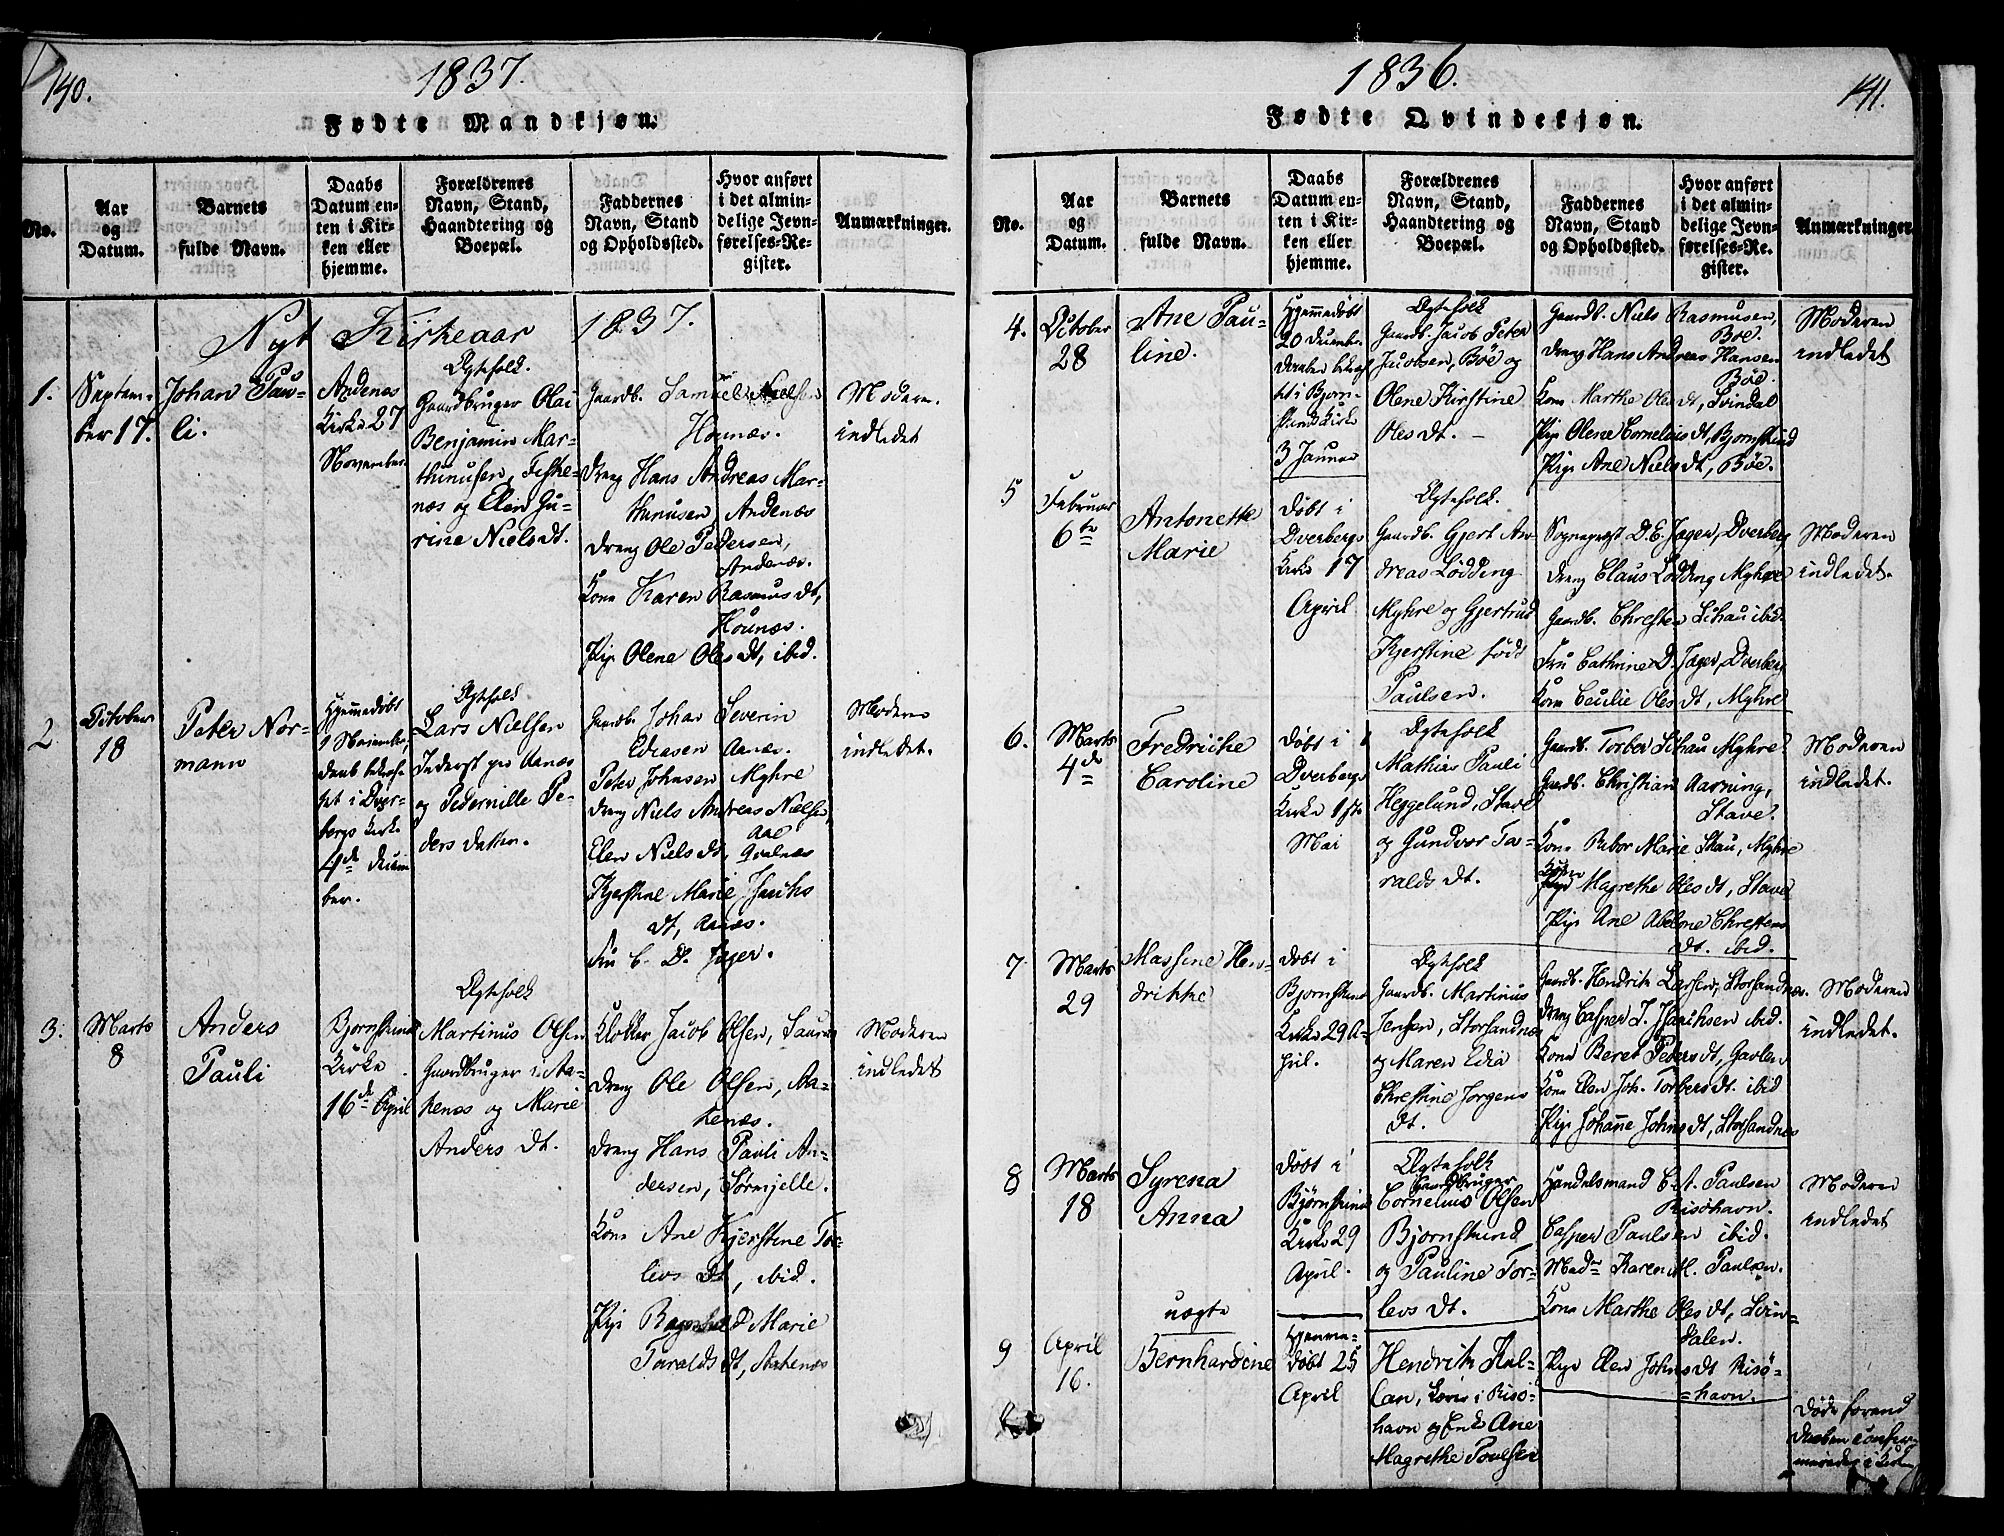 140.
1837.
Fødte Mandkjøn.
No.
Aar
og
Datum.
Barnets
fulde Navn.
Daabs
Datum en-
ten i Kir-
ken eller
hjemme.
Forældrenes
Navn, Stand,
Haandtering og
Boepæl.
Faddernes
Navn, Stand
og Opholdssted.
Hvor anført
i det almin-
delige Jevn-
førelses-Re-
gister.
Anmærkninger.
Nyt Kirkeaar 1837.
1.
Septem-
ber 17.
Johan Pau-
li.
Andenæs
Kirke 27
November
Ægtefolk.
Gaardbruger Olai
Benjamin Mar-
thinusen, Fiske-
næs og Elen Gu-
rine Nielsdt.
Gaardb. Samuel Nielsen
Hounæs.
Dreng Hans Andreas Mar-
thinusen Andenæs
Dreng Ole Pedersen,
Andenæs.
Kone Karen Rasmusdt,
Hounæs.
Pige Olene Olesdt, ibid.
Moderen
indledet
2
October
18
Peter Nor-
mann
Hjemmedøbt
1 November,
Daab bekræf-
tet i Dver-
bergs Kirke
4de Decem
ber.
Ægtefolk
Lars Nielsen
Inderst paa Aanæs
og Pedernille Pe-
ders datter.
Gaardb. Johan Severin
Edeasen Aanæs.
Peter Johnsen Myhre
Dreng Niels Andreas Nielsen,
Aae
Elen Nielsdt, Gvalnæs
Kjerstine Marie Jsachs
dt, Aanæs.
Fru C. D. Jager.
Moderen
indledet.
3.
Marts
8
Anders
Pauli
Bjornskind
Kirke
16de April
Ægtefolk
Martinus Olsen
Gaardbruger i Aa-
kenæs og Marie
Anders dt.
Klokker Jacob Olsen, Saura
Dreng Ole Olsen, Aa-
kenæs.
Dreng Hans Pauli An-
dersen, Sørmjelle.
Kone Ane Kjerstine Tor-
levs dt, ibid.
Pige Marie
Taraldsdt, Aakenæs
Moderen
indledet
1836.
141.
Fødte Qvindekjøn.
No.
Aar
og
Datum.
Barnets
fulde Navn.
Daabs
Datum en-
ten i Kir-
ken eller
hjemme.
Forældrenes
Navn, Stand,
Haandtering og
Boepæl.
Faddernes
Navn, Stand
og Opholdssted.
Hvor anført
i det almin-
delige Jevn-
førelses-Re-
gister.
Anmærkninger.
4.
October
28
Ane Pau-
line.
Hjemmedøbt
20 December
Daaben bekræf
tet i Bjørn-
skinds Kirke
3 Januar
Ægtefolk
Gaardb. Jacob Peter
Jacobsen, Böe og
Olene Kirstine
Olesdt.
Gaardb. Niels Rasmusen,
Böe.
Dreng Hans Andreas Hansen
Böe.
Kone Marthe Olesdt, Svindal
Pige Olene Corneliusdt, Bjornskind
Pige Ane Nielsdt, Böe.
Moderen
indledet
5
Februar
6te
Antonette
Marie
Döbt i
Dverbergs
Kirke 17
April
Ægtefolk.
Gaardb. Gjert An-
dreas Lödding
Myhre og Gjertrud
Kjerstine född
Paulsen.
Sognepræst D. E. Jager, Dverberg
Dreng Claus Lödding Myhre
Gaardb. Christen Schau ibid.
Fru Cathrine D. Jager, Dverberg
Kone Cecilie Olesdt, Myhre
Moderen
indledet.
6.
Marts
4de
Fredriche
Caroline
Döbt i
Dverbergs
Kirke 1ste
Mai
Ægtefolk
Mathias Pauli
Heggelund, Stave
og Gundvor Ta-
ralds dt.
Gaardb. Torber Schau Myhre.
Gaardb. Christian Aarning,
Stave.
Kone Rebor Marie Skau, Myhre
Magrethe Olesdt, Stave
Pige Ane Abelone Christens
dt. ibid.
Moderen
indledet.
7
Marts
29
Massine Hen-
drikke
Döbt i
Bjornskind
Kirke 29 A-
pril.
Ægtefolk
Gaardb. Martinus
Jensen, Storsandnæs
og Maren Edia
Christine Jorgens
dt.
Gaardb. Hendrik Larsen, Storsandnæs.
Dreng Casper J. Jsachsen ibid.
Kone Beret Pedersdt, Gavlen
Kone Elen Joh. Torbersdt. ibid
Pige Johañe Johnsdt, Storsandnæs
Moderen
indledet.
8
Marts
18
Syrena
Anna
Döbt i
Bjørnskind
Kirke 29
April.
Ægtefolk
Gaardbruger
Cornelius Olsen
Bjornskind
og Pauline Tor-
levs dt.
Handelsmand C. A. Paulsen
Risöhavn.
Casper Paulsen ibid.
Madm Karen M. Paulsen.
Kone Marthe Olesdt, Svin-
dalen.
Pige Elen Johnsdt Risö-
=havn.
Moderen
indledet
9
April
16.
uægte
Bernhardine
Hjemme-
döbt 25
April
Hendrik Kul-
i Risö-
havn og Enke Ane
Magrethe Poulsen
Döde forend
Daaben confir-
meredes i Kirken